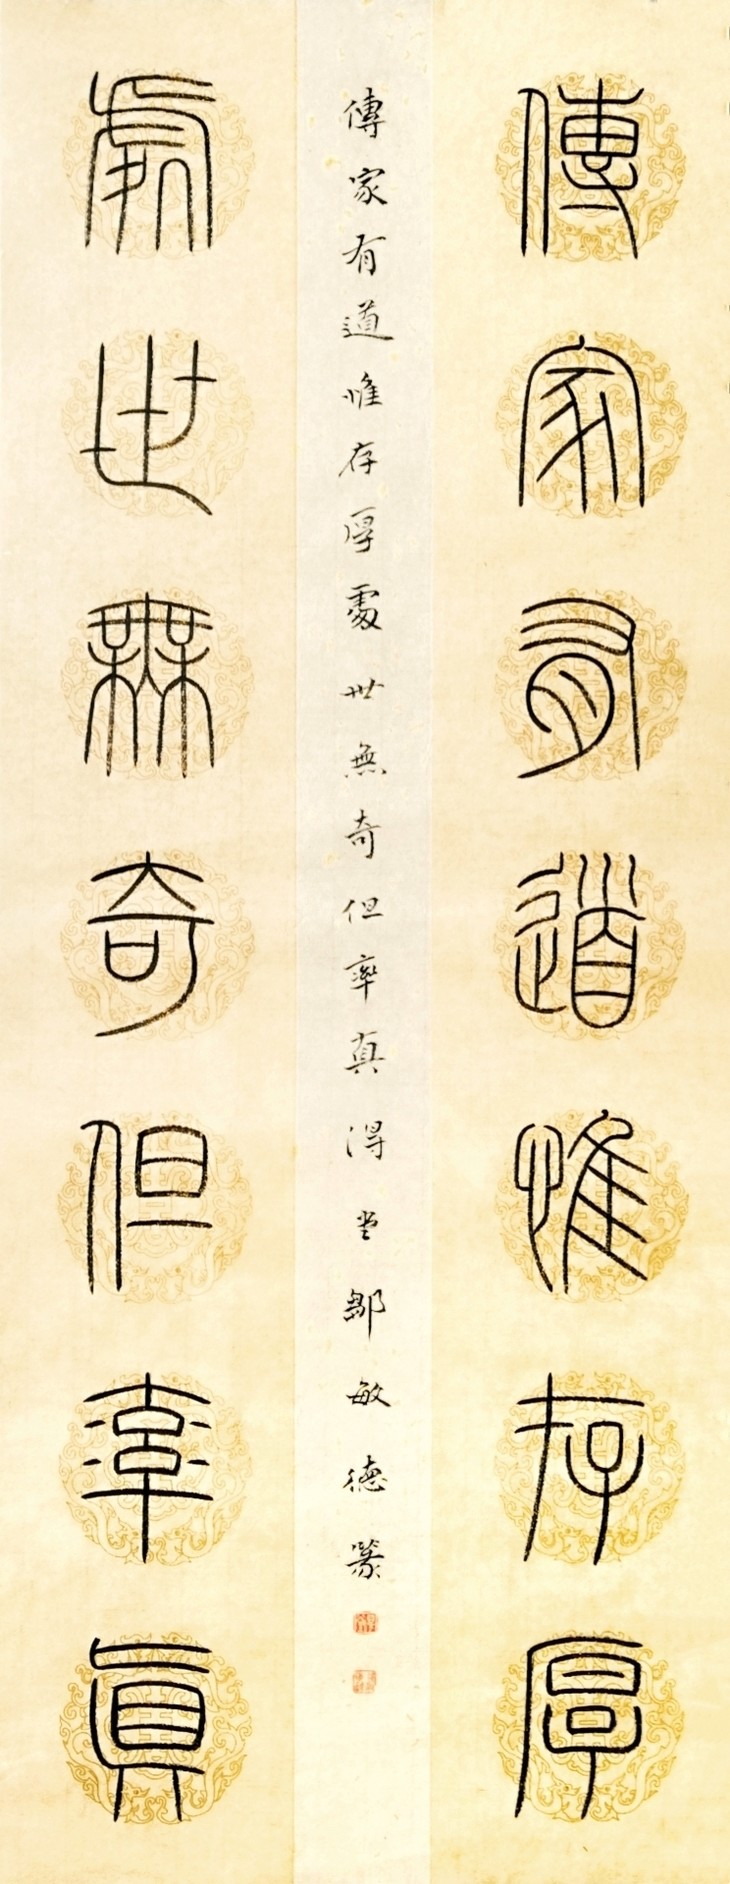 傳家有道惟存厚
傳家有道惟存厚處世無奇但率真得堂鄒敏德篆
處世無奇但率眞